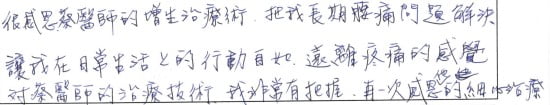 很感恩蔡醫師的增生治療術.把我長期腰痛問題解決
讓我在日常生活上的行動自如.遠離疼痛的感覺
對蔡醫師的治療技術.我非常有把握.再一次感恩他的細心治療